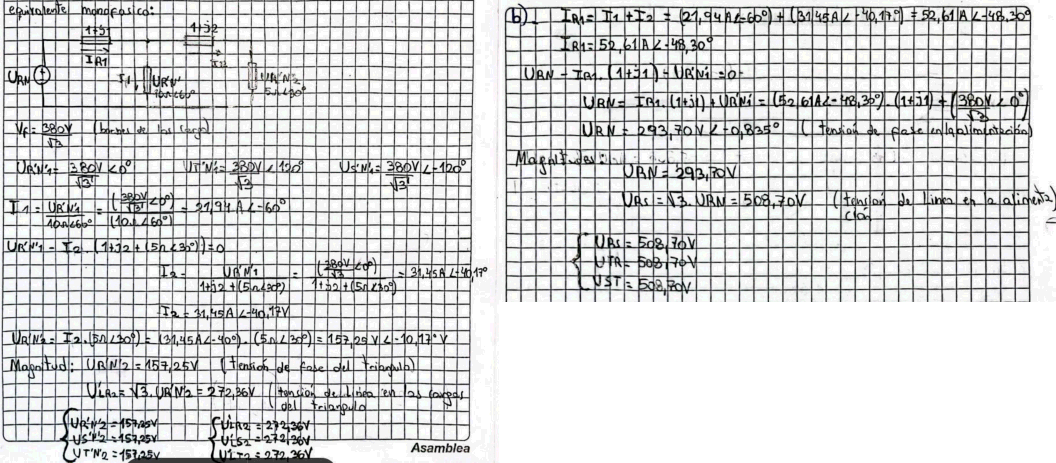 equivalente monofasico:
1+j1
1+j2
IR1
I1
UR'N'1
10Ω∠60°
UR'N'2
5Ω∠30°
URN
Vf = 380V/√3 (bornes de las cargas)
UR'N'1 = 380V/√3 ∠0° UT'N'1 = 380V/√3 ∠120° US'N'1 = 380V/√3 ∠-120°
I1 = UR'N'1/10Ω∠60° = (380V/√3 ∠0°)/(10Ω∠60°) = 21,94A∠-60°
UR'N'1 - I2.(1+j2+(5Ω∠30°))=0
I2 = UR'N'1/1+j2+(5Ω∠30°) = (380V/√3 ∠0°)/1+j2+(5Ω∠30°) = 31,45A∠-40,17°
I2 = 31,45A∠-40,17V
UR'N'2 = I2.(5Ω∠30°) = (31,45A∠-40°).(5Ω∠30°) = 157,25V∠-10,17°V
Magnitud: UR'N'2 = 157,25V (tensión de fase del triangulo)
U'LR2 = √3.UR'N'2 = 272,36V (tensión de linea en las cargas
del triangulo
UR'N'2 = 157,25V U'LR2 = 272,36V
US'N'2 = 157,25V U'LS2 = 272,36V
UT'N'2 = 157,25V U'LT2 = 272,36V
Asamblea
b). IR1 = I1 + I2 = (21,94A∠-60°) + (31,45A∠-40,17°) = 52,61A∠-48,30°
IR1 = 52,61A∠-48,30°
URN - IR1.(1+j1) - UR'N'1 = 0
URN = IR1.(1+j1) + UR'N'1 = (52,61A∠-48,30°).(1+j1) + (380V/√3 ∠0°)
URN = 293,70V∠-0,835° (tensión de fase en la alimentación)
Magnitudes:
URN = 293,70V
URS = √3.URN = 508,70V (tensión de Linea en la alimenta
ción)
URS = 508,70V
UTR = 508,70V
UST = 508,70V